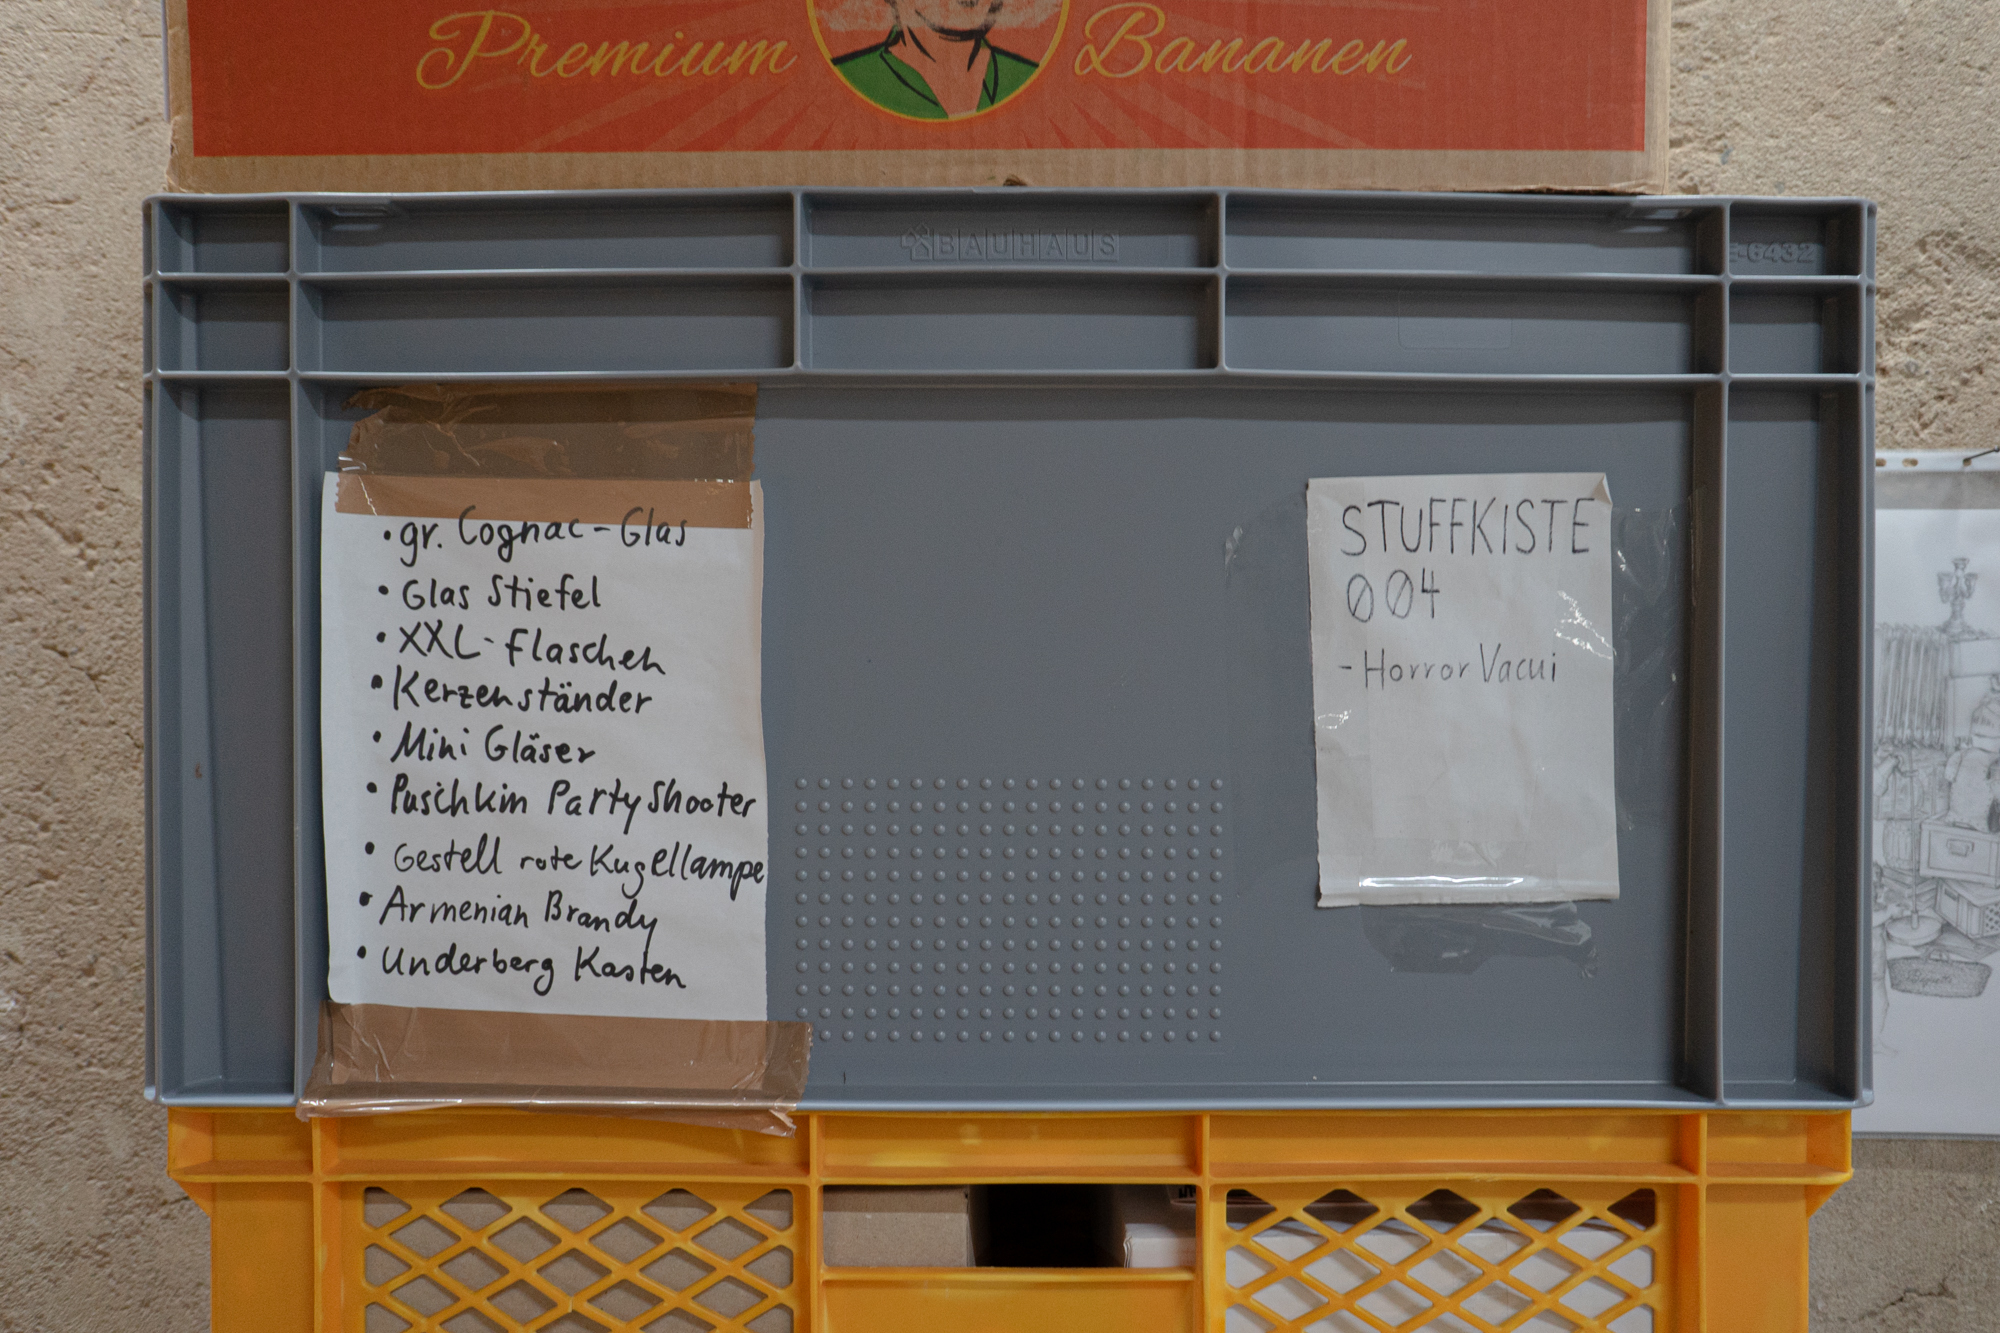 Premium Bananen
BAUHAUS
E-6432
• gr. Cognac-Glas
• Glas Stiefel
• XXL-Flaschen
• Kerzenständer
• Mini Gläser
• Puschkin Party Shooter
• Gestell rote Kugellampe
• Armenian Brandy
• Underberg Kasten
STUFFKISTE
004
- Horror Vacui